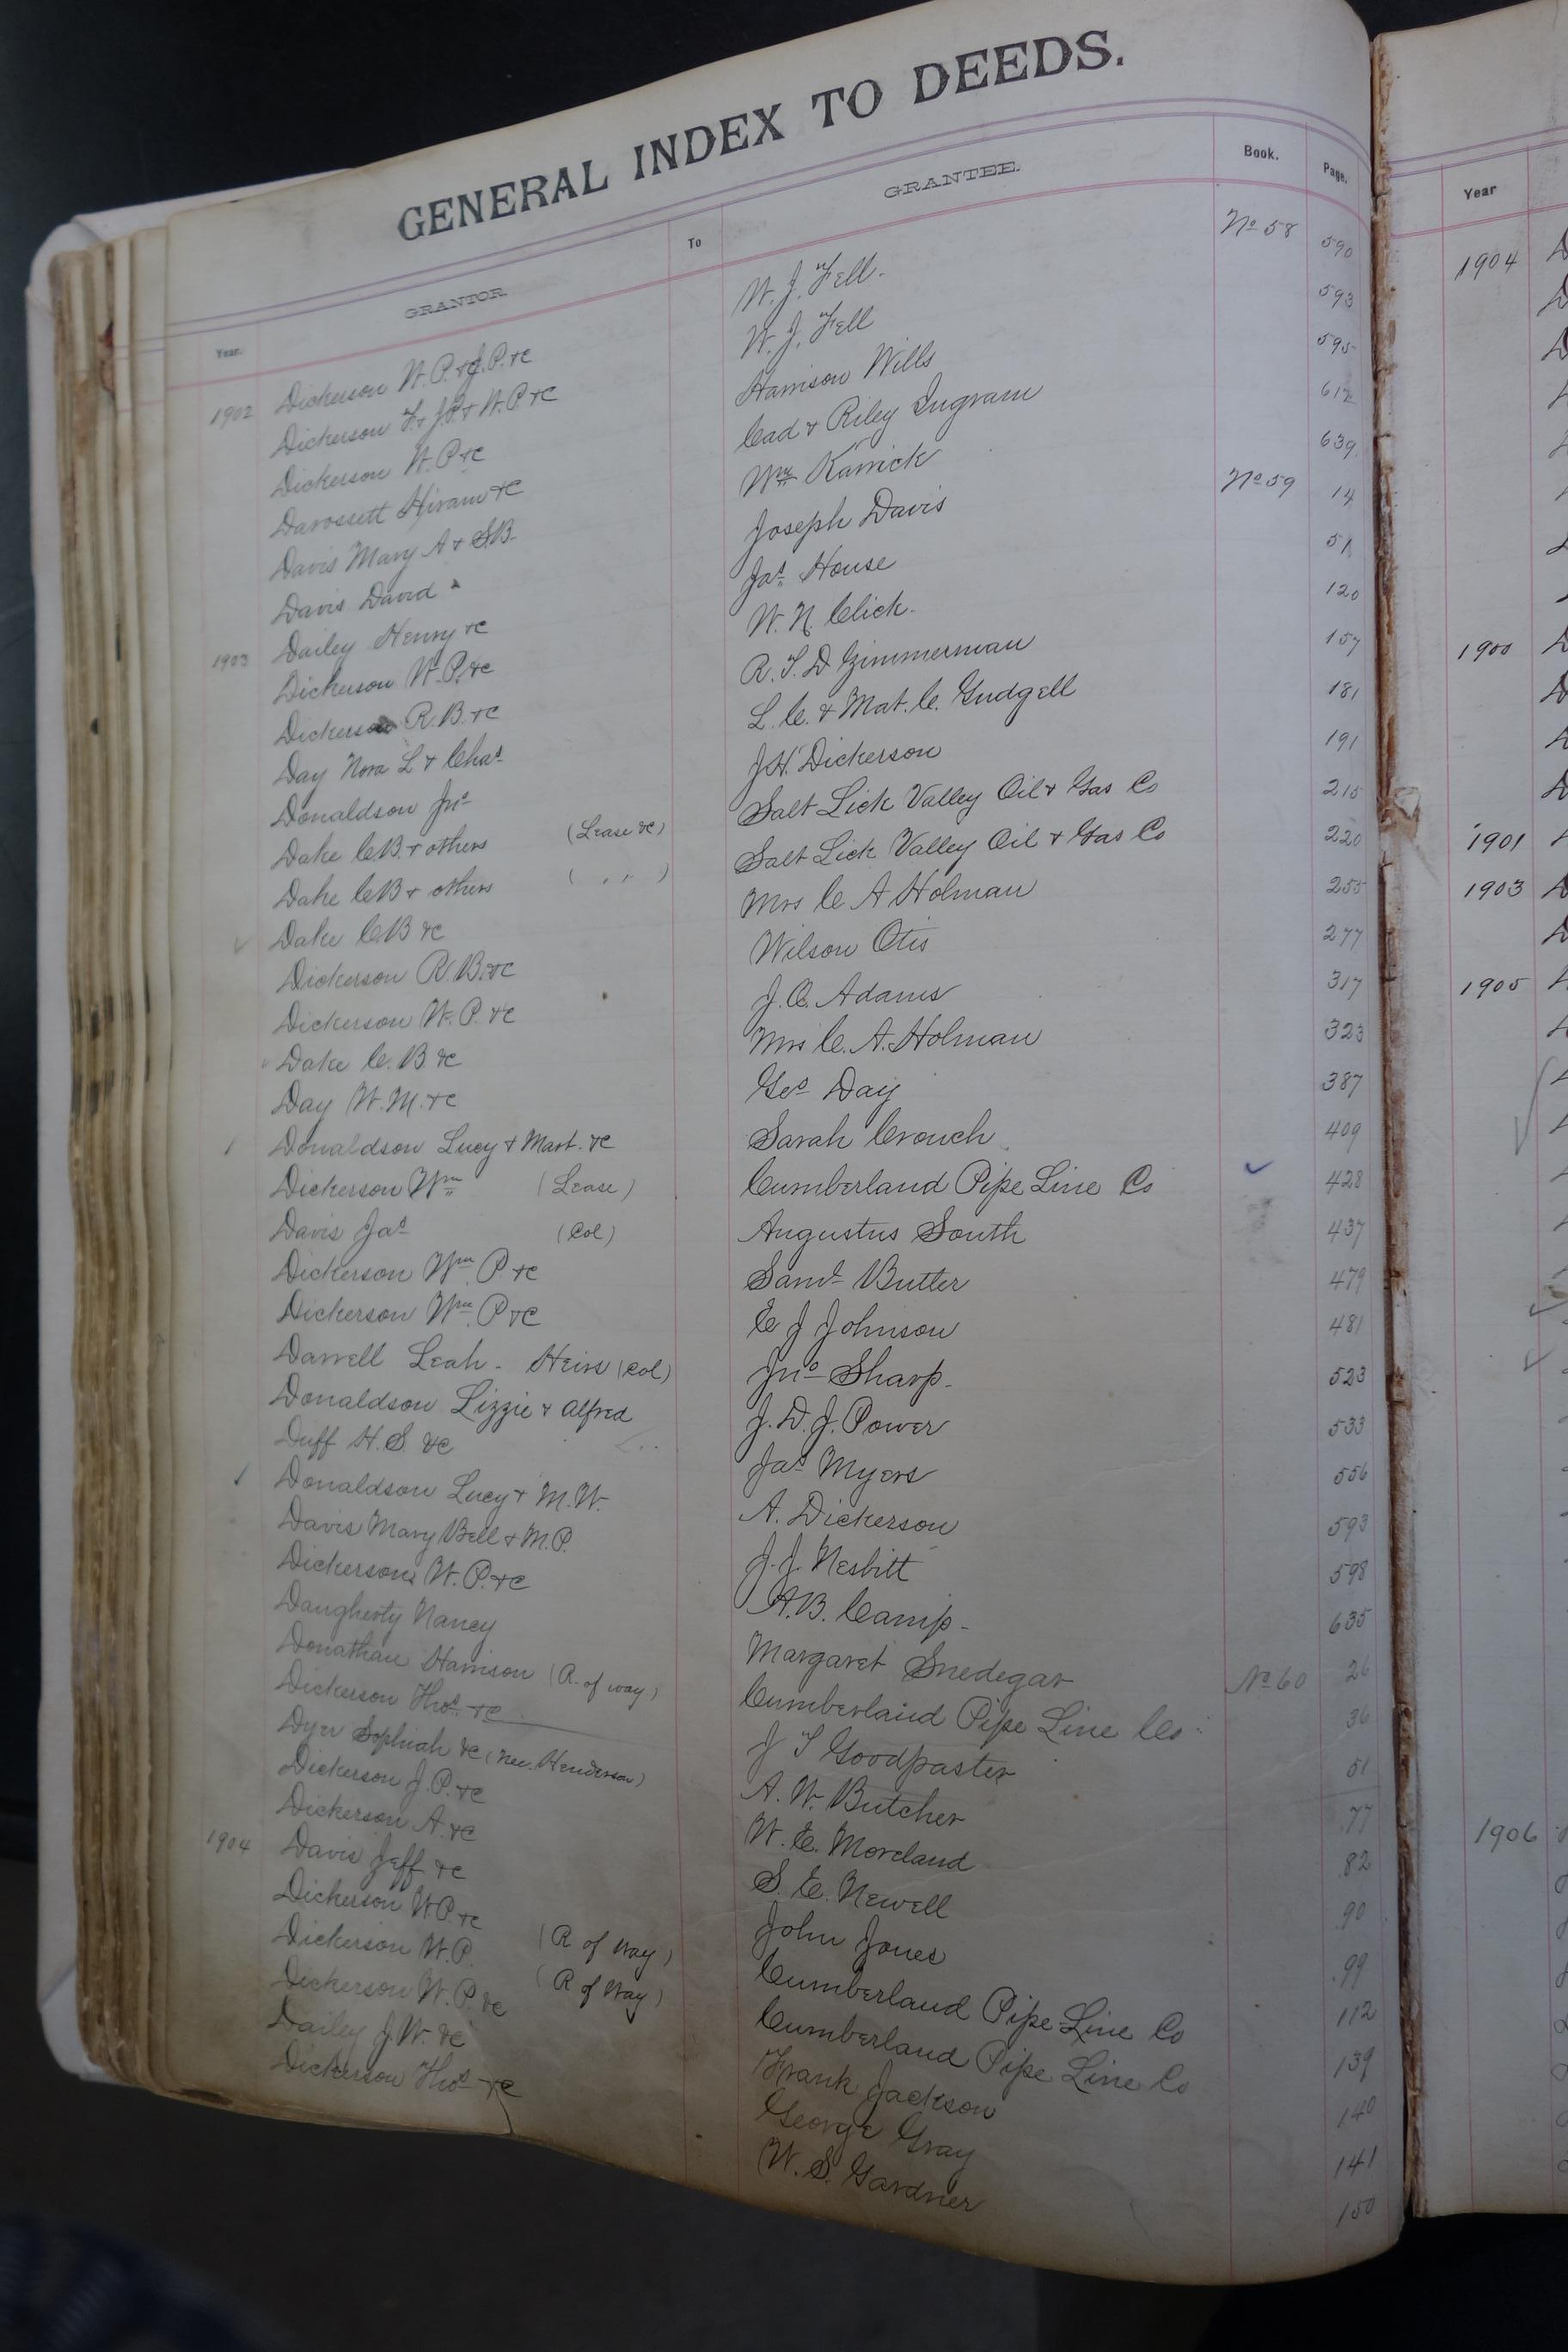 GENERAL INDEX TO DEEDS.
Year. GRANTOR. To GRANTEE. Book. Page.
1902 Dickerson W. P. & J. P. &c W. J. Fell. No 58 590
Dickerson F. & J. P. & W. P. &c W. J. Fell 593
Dickerson W. P. &c Harrison Wills 595
Darossett Hiram &c Cad & Riley Ingram 612
Davis Mary A & S.B. Wm Karrick 639
Davis David Joseph Davis No 59 14
1903 Dailey Henry &c Jas House 51
Dickerson W. P. &c W. N. Click. 120
Dickerson R. B. &c R. T. D Zimmerman 157
Day Nora L & Chas L. C. & Mat. C. Gudgell 181
Donaldson Jno J.H. Dickerson 191
Dake C.B. & others (Lease &c) Salt Lick Valley Oil & Gas Co 215
Dake C.B & others ( " " ) Salt Lick Valley Oil & Gas Co 220
Dake C.B &c Mrs C A Holman 255
Dickerson R. B. &c Wilson Otis 277
Dickerson W. P. &c J. C. Adams 317
Dake C. B. &c Mrs C. A. Holman 323
Day W. M. &c Geo Day 387
Donaldson Lucy & Mart. &c Sarah Crouch 409
Dickerson Wm (Lease) Cumberland Pipe Line Co 428
Davis Jas (Col) Augustus South 437
Dickerson Wm P. &c Saml Butler 479
Dickerson Wm P &c E J Johnson 481
Darrell Leah - Heirs (Col) Jno Sharp. 523
Donaldson Lizzie & Alfred J. D. J. Power 533
Duff H. S. &c Jas Myers 556
Donaldson Lucy & M. W. A. Dickerson 593
Davis Mary Bell & M. P. J. J. Nesbitt 598
Dickerson W. P. &c A. B. Camp - 635
Daugherty Nancy Margaret Snedegar No 60 26
Donathan Harrison (R. of way) Cumberland Pipe Line Co 36
Dickerson Thos &c J T Goodpaster 51
Dyer Sophiah &c (nee. Henderson) A. W. Butcher 77
Dickerson J. P. &c W. E. Moreland 82
Dickerson A. &c S. E. Newell 90
1904 Davis Jeff &c John Jones 99
Dickerson W.P. &c (R of Way) Cumberland Pipe Line Co 112
Dickerson W. P. (R of Way) Cumberland Pipe Line Co 139
Dickerson W. P. &c Frank Jackson 140
Dailey J. W. &c George Gray 141
Dickerson Thos &c W. S. Gardner 150
Year
1904
1900
1901
1903
1905
1906